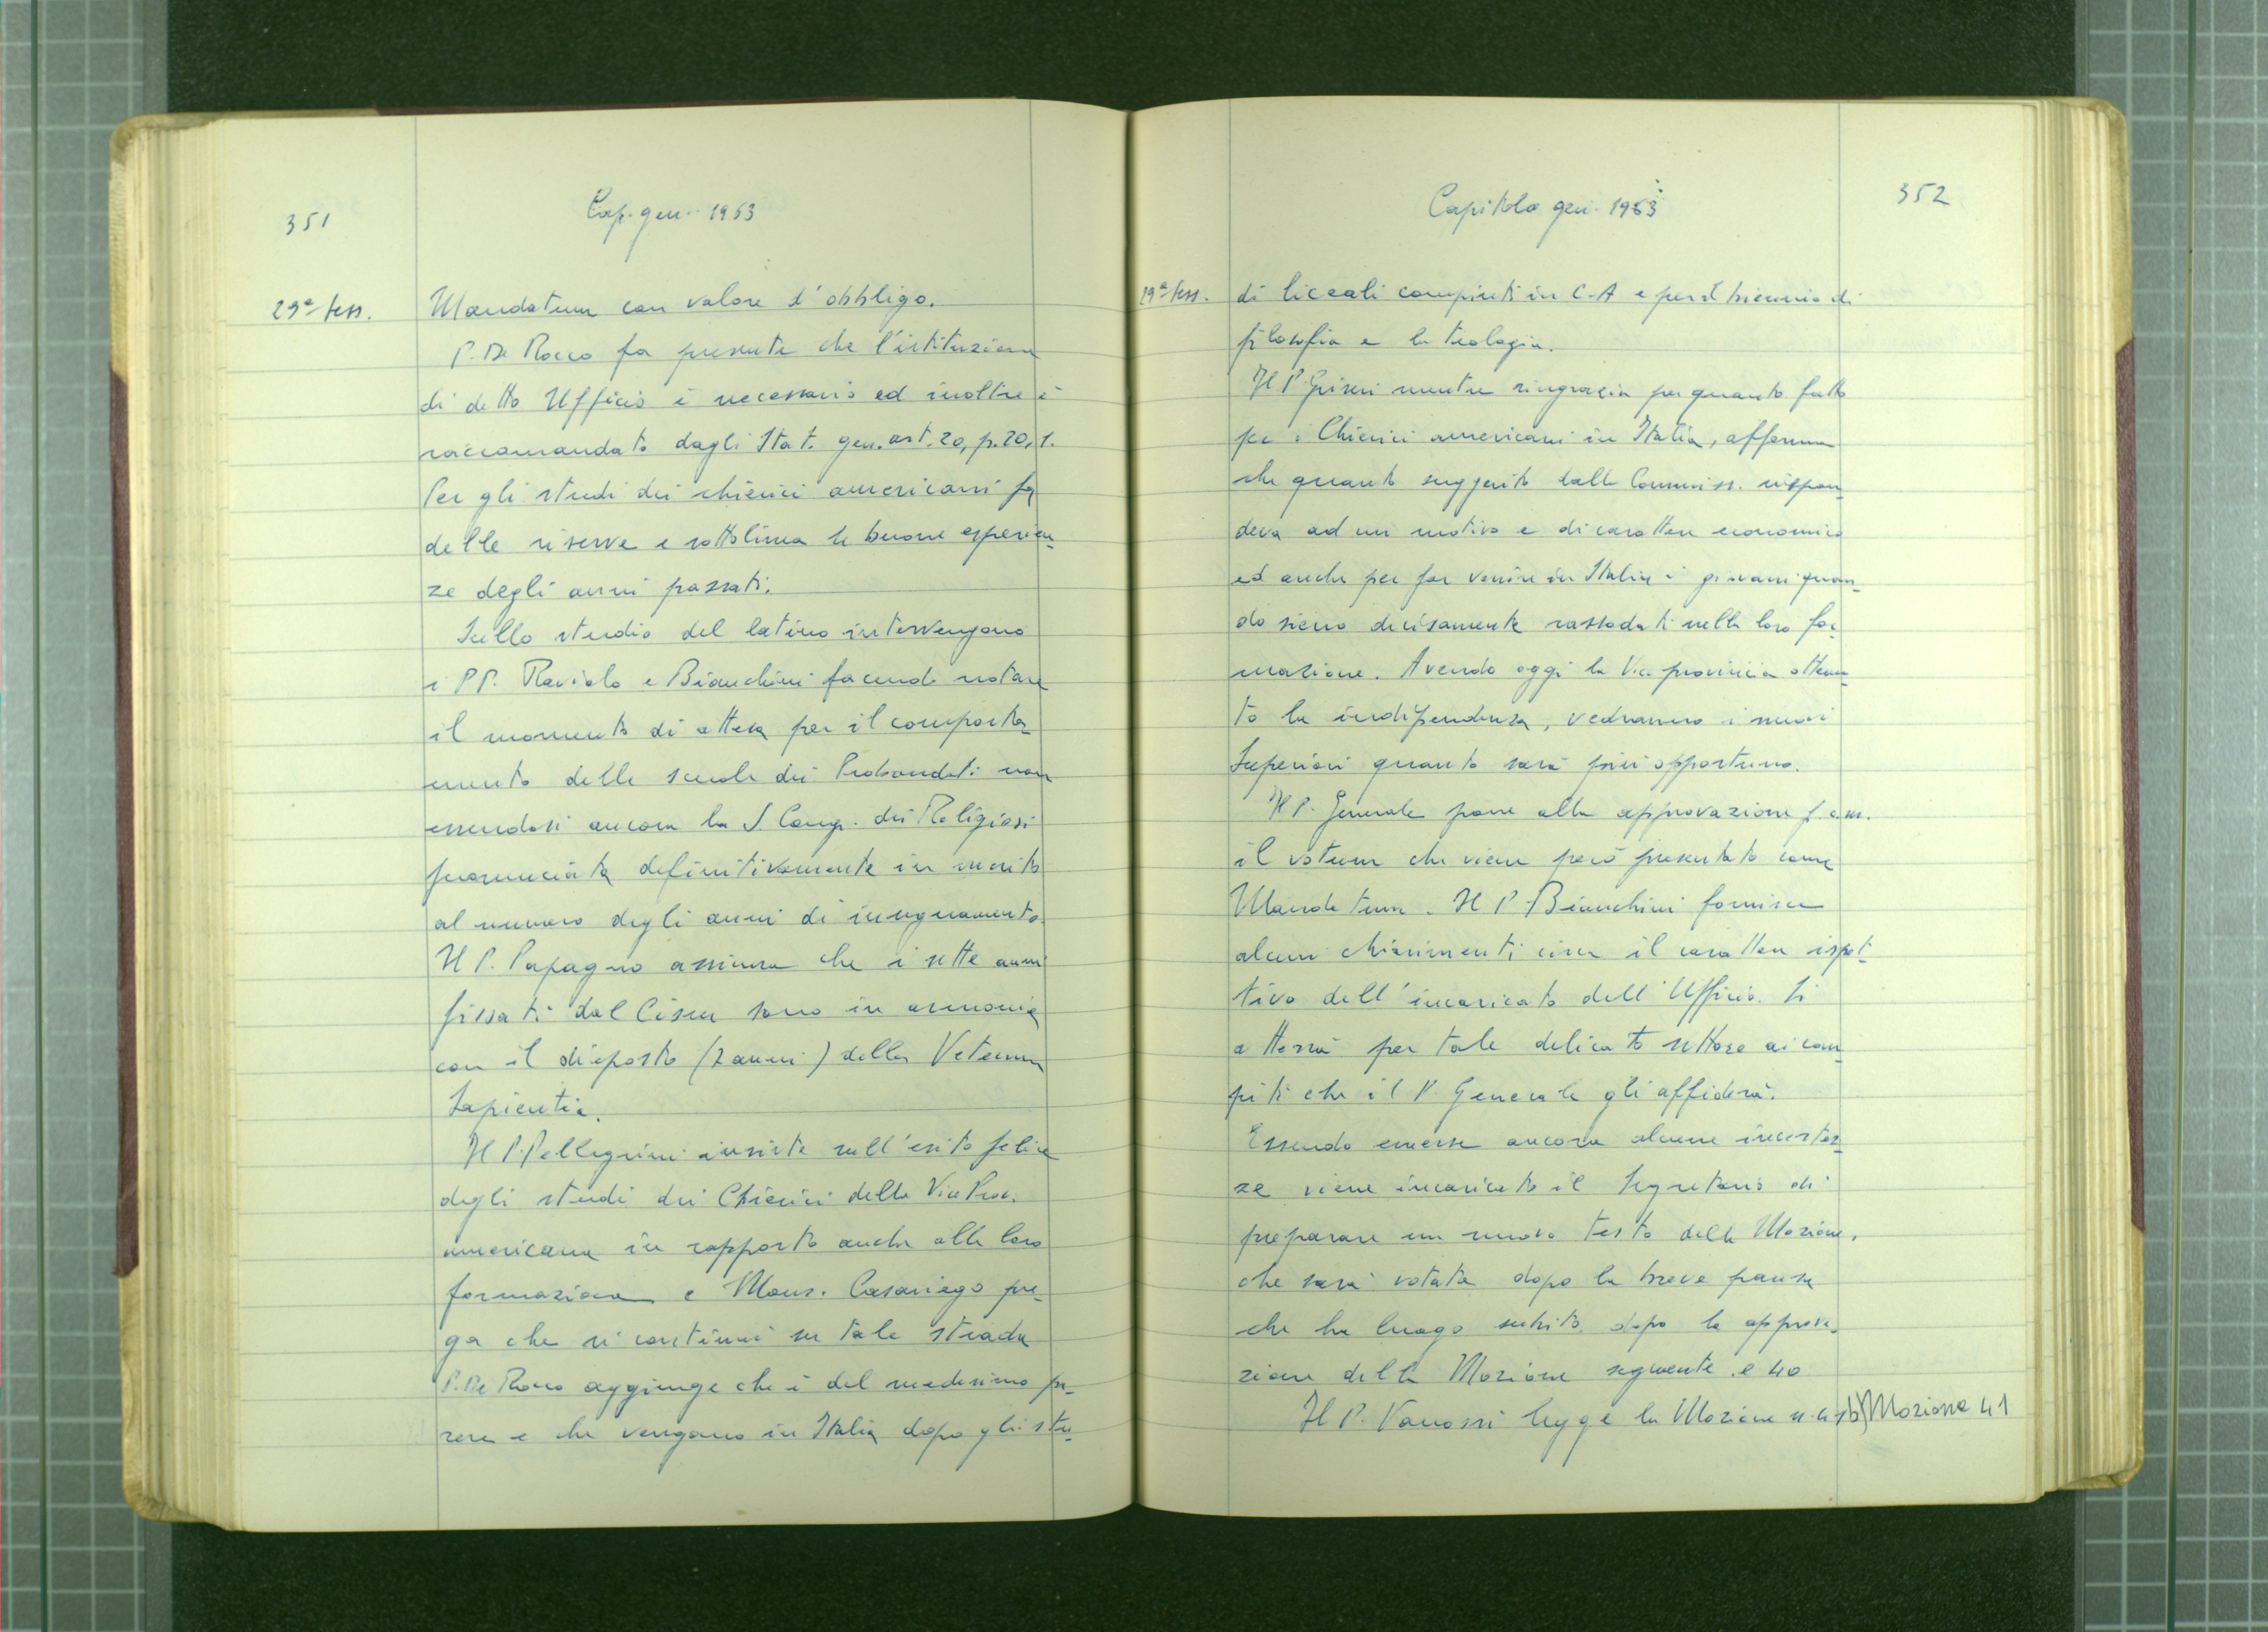 351
Cap. gen. 1963
29ª sess.
Mandatum con valore d'obbligo.
P. De Rocco fa presente che l'istituzione
di detto Ufficio è necessario ed inoltre è
raccomandato dagli Stat. gen. art. 20, p. 20, 1.
Per gli studi dei chierici americani fa
delle riserve e sottolinea le buone esperien-
ze degli anni passati.
Sullo studio del latino intervengono
i PP. Raviolo e Bianchini facendo notare
il momento di attesa per il comporta-
mento delle scuole dei Probandati non
essendosi ancora la S. Cong. dei Religiosi
pronunciata definitivamente in merito
al numero degli anni di insegnamento.
Il P. Papagno assicura che i sette anni
fissati dal sono in armonia
con il disposto (7 anni) della Veterum
Sapientia.
Il P. Pellegrini insiste sull'esito felice
degli studi dei Chierici della Vice Prov.
americana in rapporto anche alla loro
formazione e Mons. Casariego pre-
ga che si continui su tale strada
P. De Rocco aggiunge che è del medesimo pa-
rere e che vengano in Italia dopo gli stu-
352
Capitolo gen. 1963
29ª sess.
di liceali compiuti in C-A e per il biennio di
filosofia e la teologia.
Il P. Griseri mentre ringrazia per quanto fatto
per i Chierici americani in Italia, afferma
che quanto suggerito dalla Commiss. rispon-
deva ad un motivo e di carattere economico
ed anche per far venire in Italia i giovani quan-
do siano decisamente rassodati nella loro for-
mazione. Avendo oggi la Vice provincia ottenu-
to la indipendenza, vedranno i nuovi
Superiori quanto sarà più opportuno.
Il P. Generale pone alla approvazione p. a. m.
il votum che viene però presentato come
Mandatum. Il P. Bianchini fornisce
alcuni chiarimenti circa il carattere ispet-
tivo dell'incaricato dell'Ufficio. Si
atterrà per tale delicato settore ai com-
piti che il P. Generale gli affiderà.
Essendo emerse ancora alcune incertez-
ze viene incaricato il Segretario di
preparare un nuovo testo della Mozione,
che sarà votata dopo la breve pausa
che ha luogo subito dopo la approva-
zione della Mozione seguente. e 40
Il P. Vanossi legge la Mozione n. 41 b) Mozione 41